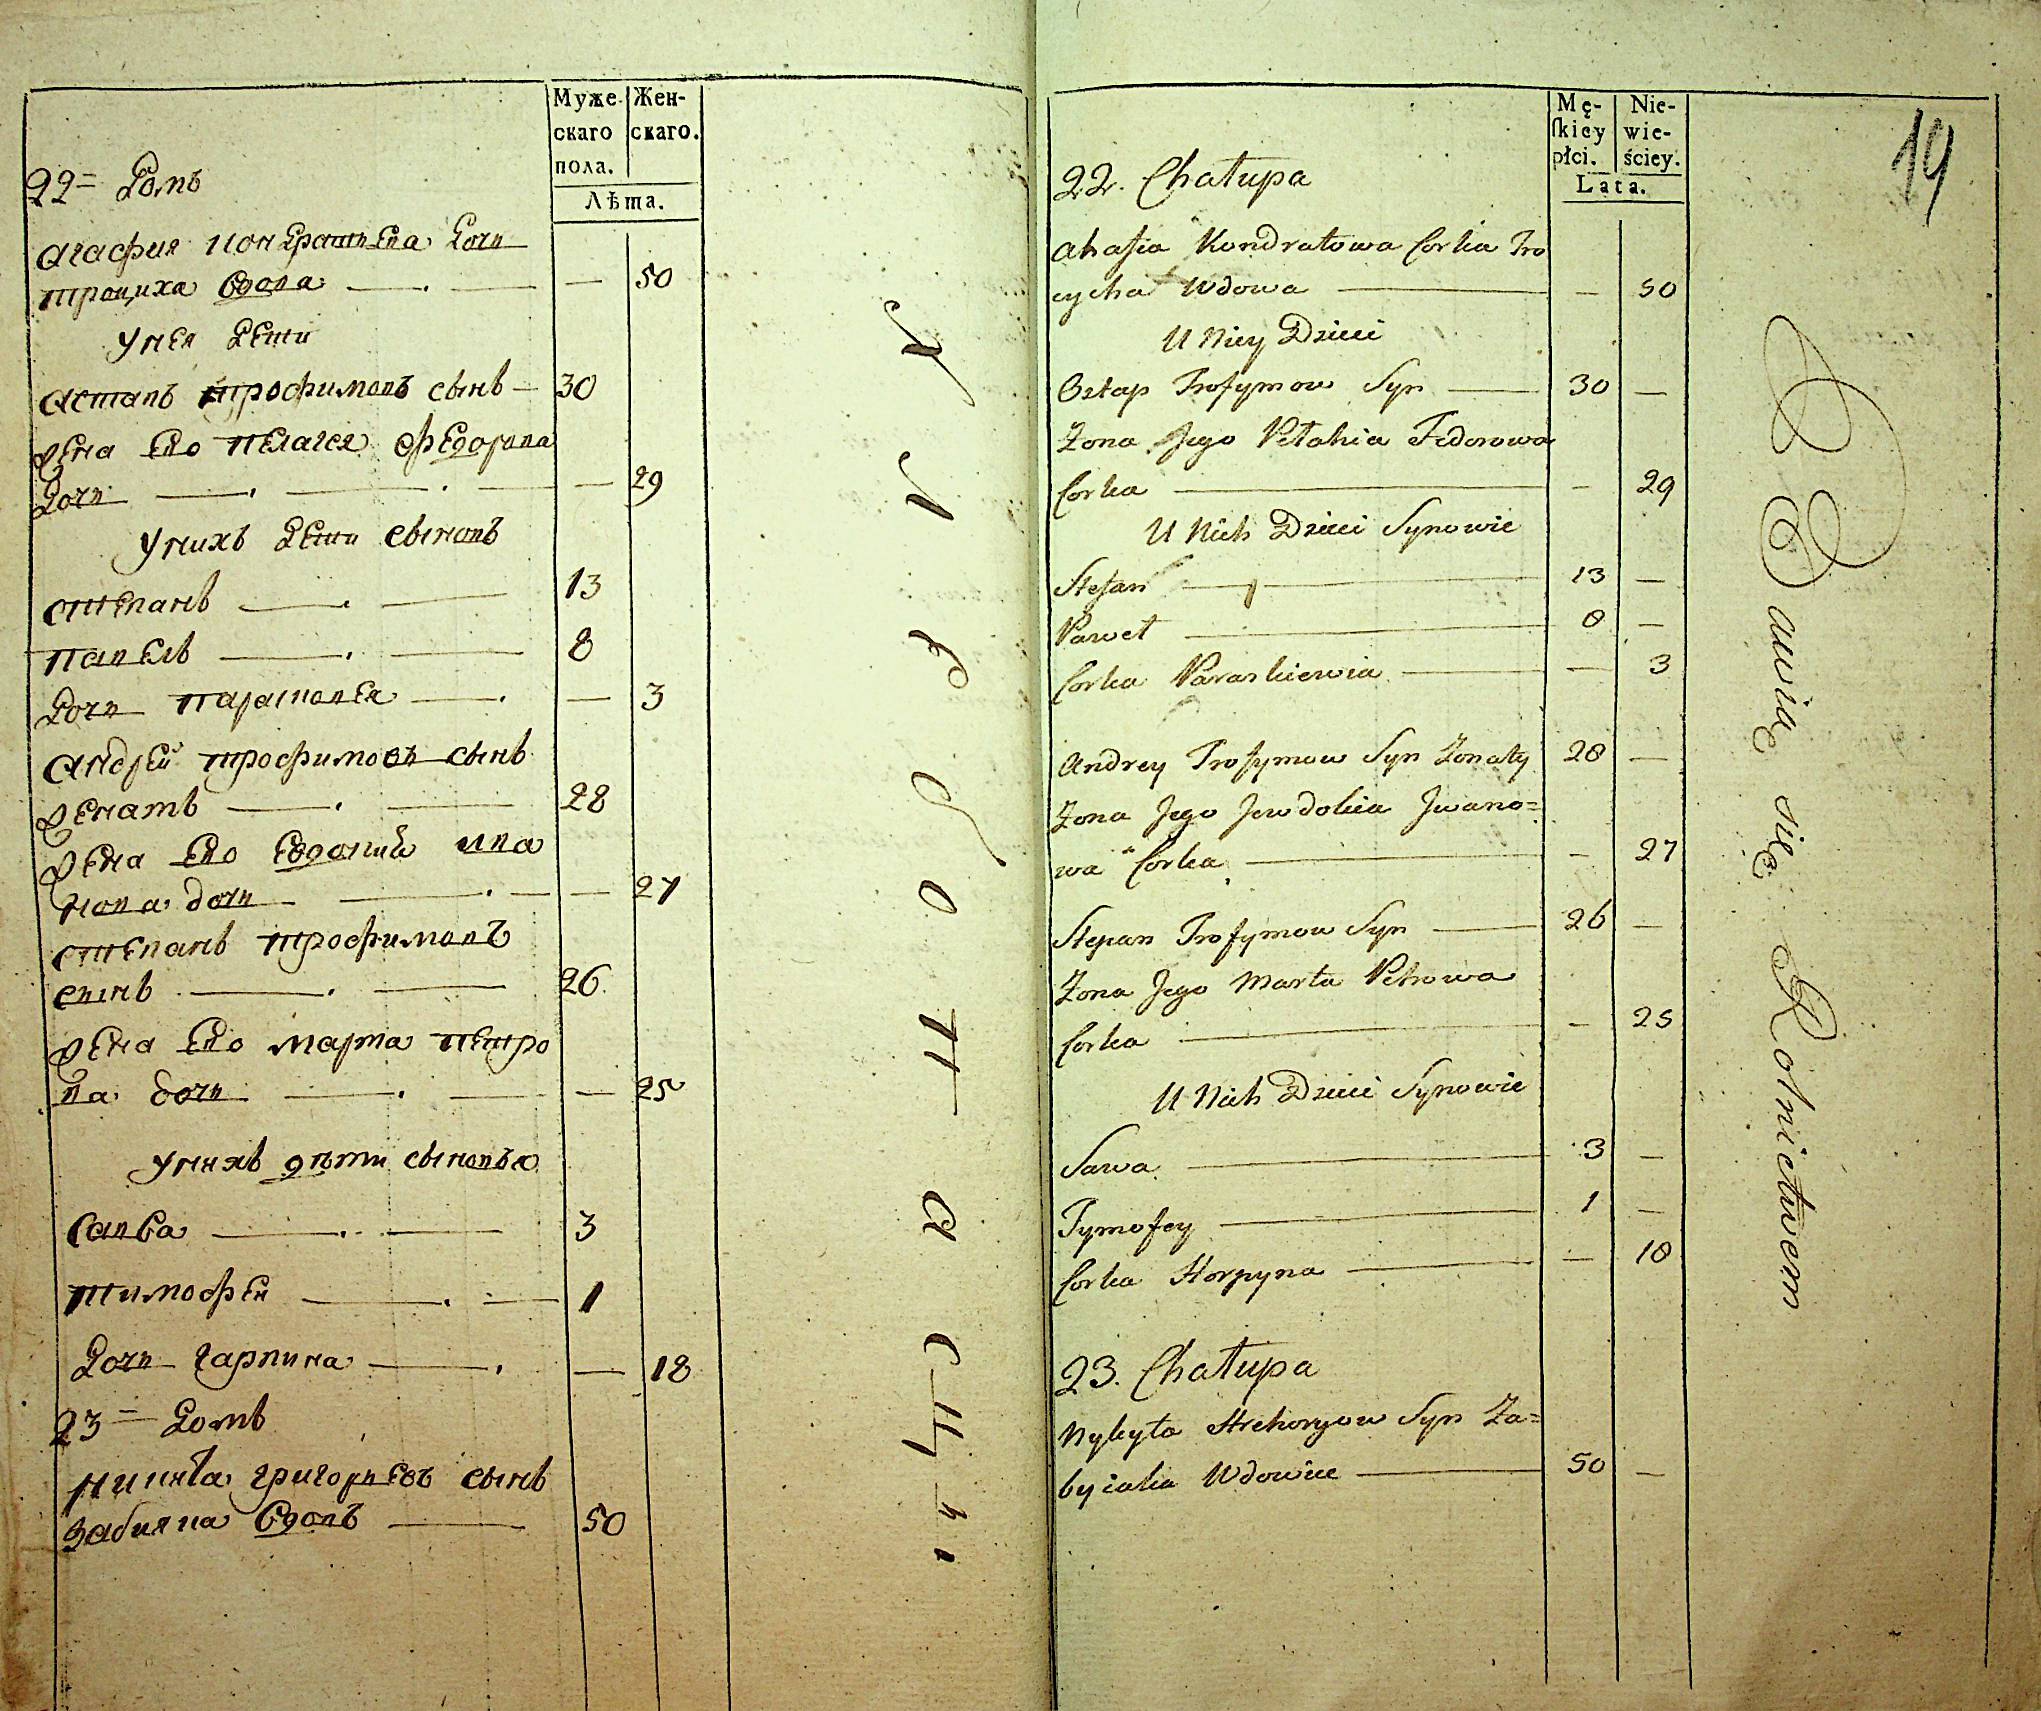 Муже- Жен-
скаго скаго.
пола.
Лѣта.
22= Домъ
Агафия кондратьева дочь
троциха вдова — — 50
У нея дети
Астапъ трофимовъ сынъ — 30
жена ево пелагея федорова
дочь — — 29
У нихъ дети сыновъ
степанъ — 13
павелъ — 8
дочь парасковея — — 3
Андрей трофимовъ сынъ
женатъ — 28
жена ево евдокия ива
нова дочь — — 27
степанъ трофимовъ
сынъ — 26
жена ево марта петро
ва дочь — — 25
У нихъ дѣти сыновья
савва — 3
тимофей — 1
дочь гарпина — — 18
23= домъ
никита григорьевъ сынъ
забияка вдовъ — 50
Mę- Nie-
ſkiey wie-
płci. ściey.
Lata.
19
22. Chałupa
Ahafia Kondratowa Corka Tro
cycha Wdowa — — 50
U Niey Dzieci
Ostap Trofymow Syn — 30 —
Zona Jego Pełahia Fedorowa
Corka — — 29
U Nich Dzieci Synowie
Stefan — 13 —
Paweł — 8 —
Corka Paraskiewia — — 3
Andrey Trofymow Syn Zonaty 28 —
Zona Jego Jewdokia Jwano=
wa Corka — — 27
Stepan Trofymow Syn — 26 —
Zona Jego Marta Petrowa
Corka — — 25
U Nich Dzieci Synowie
Sawa — 3 —
Tymofey — 1 —
Corka Horpyna — — 18
23. Chałupa
Nykyta Hrehoryow Syn Za=
byiaka Wdowiec — 50 —
Bawią się Rolnictwem